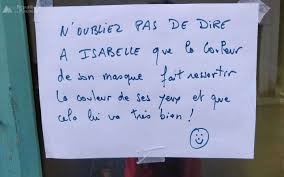 N'OUBLIEZ PAS DE DIRE
A ISABELLE que la couleur
de son masque fait ressortir
la couleur de ses yeux et que
cela lui va très bien !